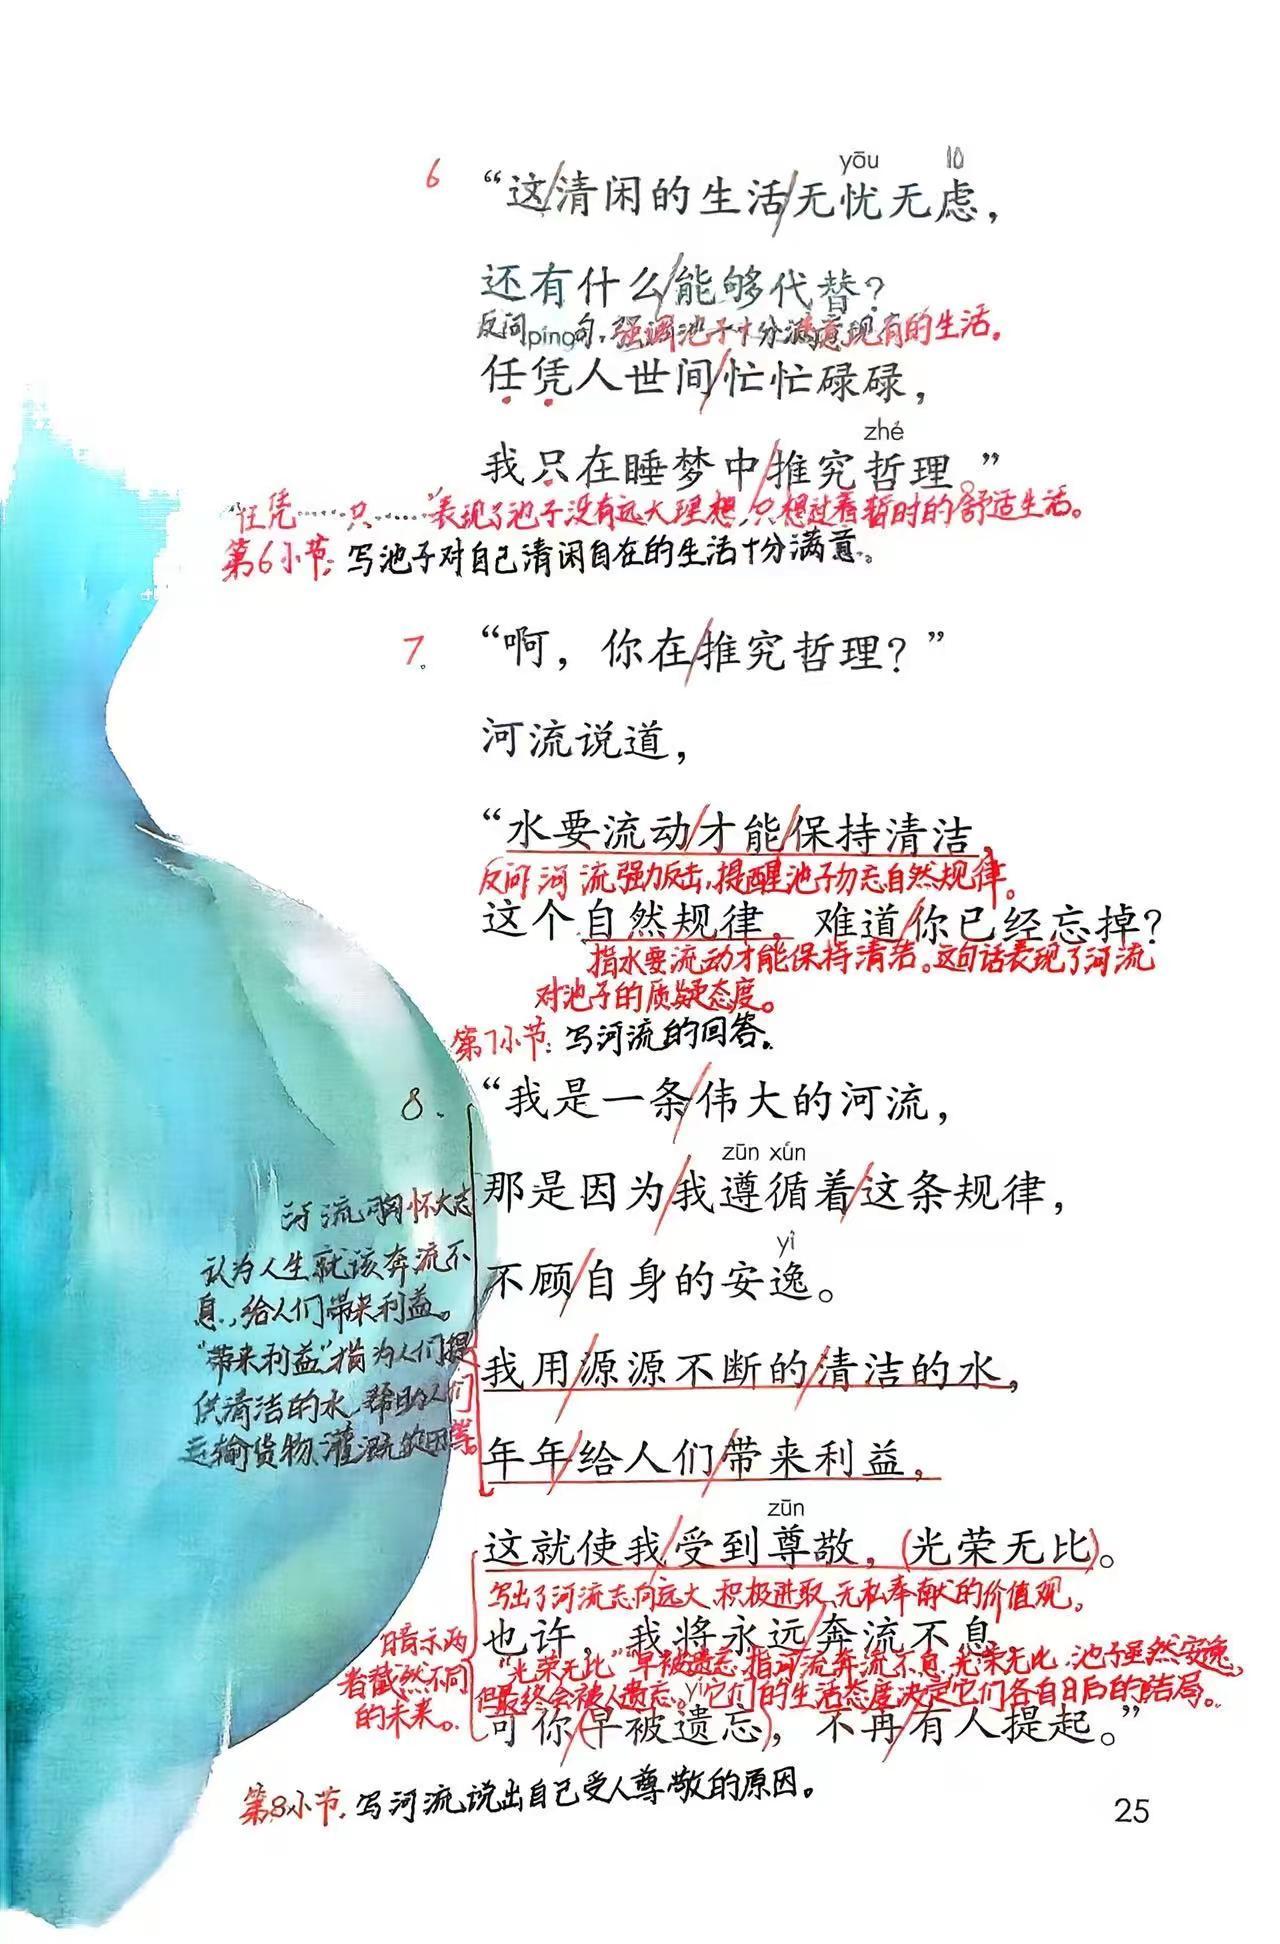 yōu 10
6 “这/清闲的生活/无忧无虑，
还有什么/能够代替？
反问píng句，强调池子十分满意现有的生活。
任凭人世间/忙忙碌碌，
zhé
我只在睡梦中/推究哲理。”
“任凭……只……”表现了池子没有远大理想，只想过着暂时的舒适生活。
第6小节：写池子对自己清闲自在的生活十分满意。
7. “啊，你在/推究哲理？”
河流说道，
“水要流动/才能/保持清洁，
反问 河流强力反击，提醒池子勿忘自然规律。
这个自然规律，难道/你已经忘掉？
指水要流动才能保持清洁。这句话表现了河流
对池子的质疑态度。
第7小节：写河流的回答。
8. “我是一条/伟大的河流，
zūn xún
那是因为/我遵循着/这条规律，
yì
不顾/自身的安逸。
我用/源源不断的/清洁的水，
年年/给人们/带来利益，
河流胸怀大志
认为人生就该奔流不
息，给人们带来利益。
“带来利益”指为人们提
供清洁的水，帮助人们
运输货物、灌溉农田等。
zūn
这就使我/受到尊敬，(光荣无比)。
写出了河流志向远大、积极进取、无私奉献的价值观。
也许，我将永远/奔流不息，
“光荣无比”“早被遗忘”指河流奔流不息，光荣无比，池子虽然安逸，
但最终会被人遗忘。yí它们的生活态度决定它们各自日后的结局。
可你/(早被遗忘)，不再/有人提起。”
暗示两
者截然不同
的未来。
第8小节：写河流说出自己受人尊敬的原因。
25